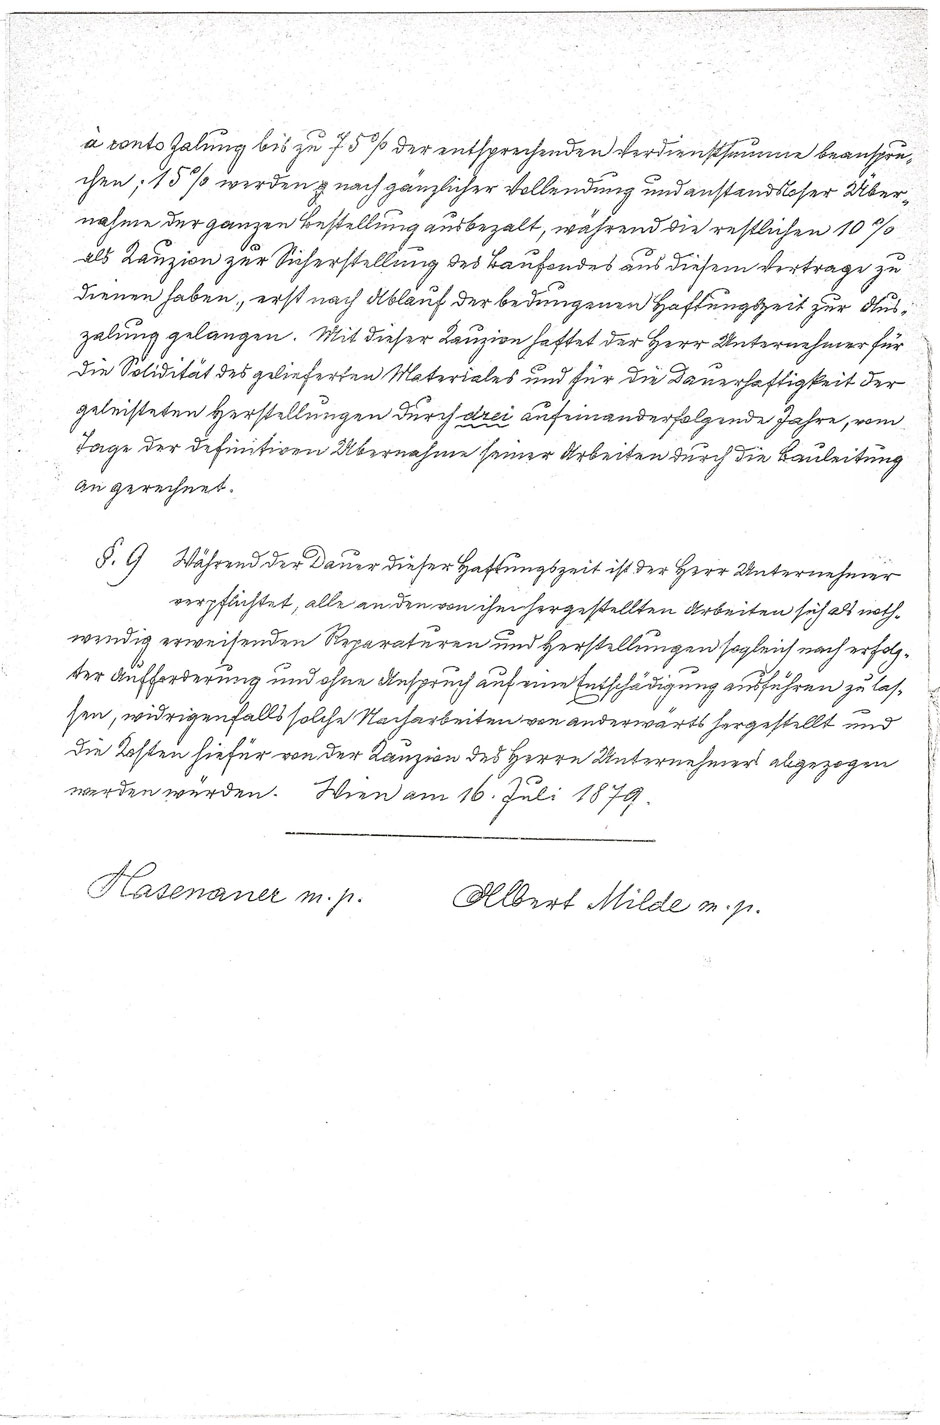 à conto Zalung bis zu 75% der entsprechenden Verdienstsumme beanspru-
chen; 15% werden nach gänzlicher Vollendung und anstandsloser Über-
nahme der ganzen Bestellung ausbezalt, während die restlichen 10%
als Kauzion zur Sicherstellung des Baufondes aus diesem Vertrage zu
dienen haben, erst nach Ablauf der bedungenen Haftungszeit zur Aus-
zalung gelangen. Mit dieser Kauzion haftet der Herr Unternehmer für
die Solidität des gelieferten Materiales und für die Dauerhaftigkeit der
geleisteten Herstellungen durch drei aufeinanderfolgende Jahre, vom
Tage der definitiven Übernahme seiner Arbeiten durch die Bauleitung
an gerechnet.
§. 9 Während der Dauer dieser Haftungszeit ist der Herr Unternehmer
verpflichtet, alle an den von ihm hergestellten Arbeiten sich als noth-
wendig erweisenden Reparaturen und Herstellungen sogleich nach erfolg-
ter Aufforderung und ohne Anspruch auf eine Entschädigung ausführen zu las-
sen, widrigenfalls solche Nacharbeiten von anderwärts hergestellt und
die Kosten hiefür von der Kauzion des Herrn Unternehmers abgezogen
werden würden. Wien am 16. Juli 1879.
Hasenauer m. p. Albert Milde m. p.